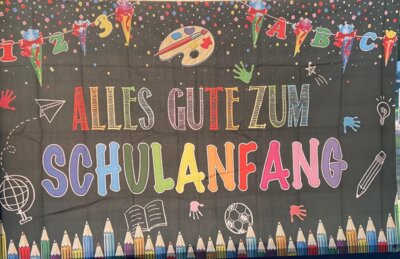 1 2 3 A B C
ALLES GUTE ZUM
SCHULANFANG